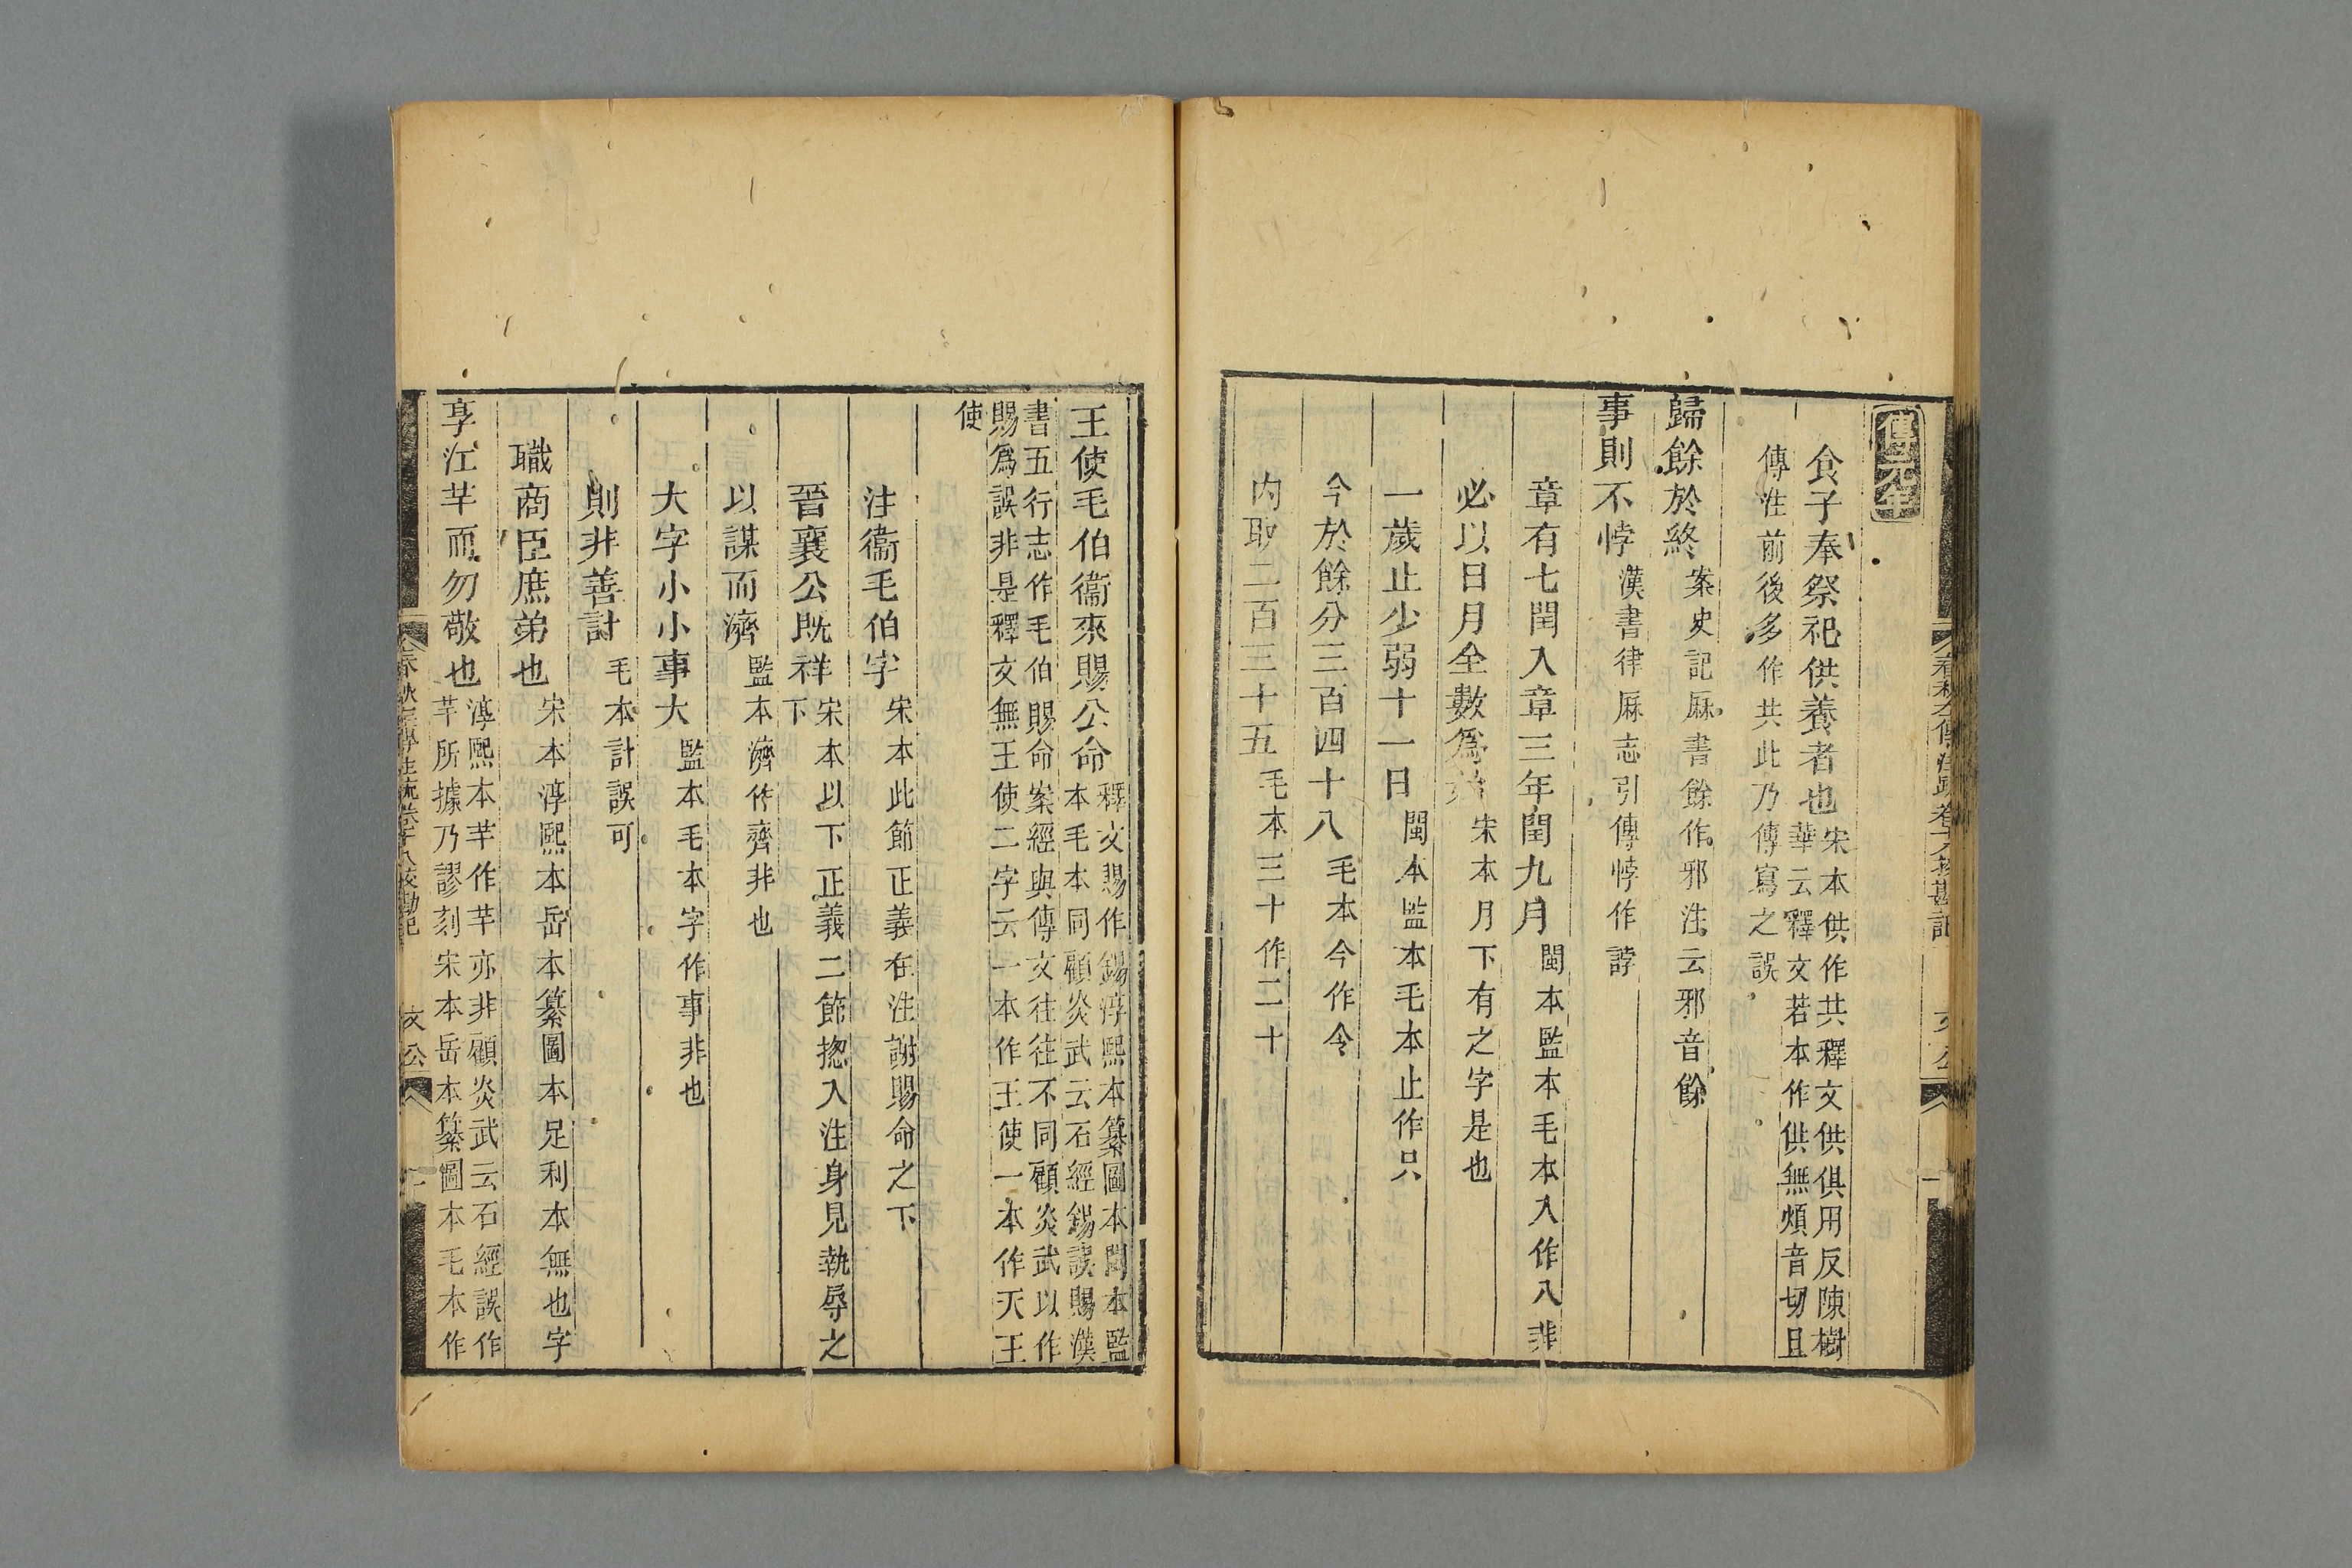 傳元年
食子奉祭祀供養者也宋本供作共釋文供俱用反陳樹
華云釋文若本作供無煩音切且
傳注前後多作共此乃傳寫之誤
歸餘於終案史記厤書餘作邪注云邪音餘
事則不悖漢書律厤志引傳悖作誖
章有七閏入章三年閏九月閩本監本毛本入作八非
必以日月全數爲始宋本月下有之字是也
一歲止少弱十一日閩本監本毛本止作只
今於餘分三百四十八毛本今作令
内取二百三十五毛本三十作二十
王使毛伯衞來賜公命釋文賜作錫淳熙本纂圖本閩本監
本毛本同顧炎武云石經錫誤賜漢
書五行志作毛伯賜命案經與傳文往往不同顧炎武以作
賜爲誤非是釋文無王使二字云一本作王使一本作天王
使
注衞毛伯字宋本此節正義在注謝賜命之下
晉襄公既祥宋本以下正義二節揔入注身見執辱之
下
以謀而濟監本濟作齊非也
大字小小事大監本毛本字作事非也
則非善計毛本計誤可
職商臣庶弟也宋本淳熙本岳本纂圖本足利本無也字
享江芊而勿敬也淳熙本芊作芉亦非顧炎武云石經誤作
芊所據乃謬刻宋本岳本纂圖本毛本作
春秋左傳注疏卷十八校勘記
文公
一